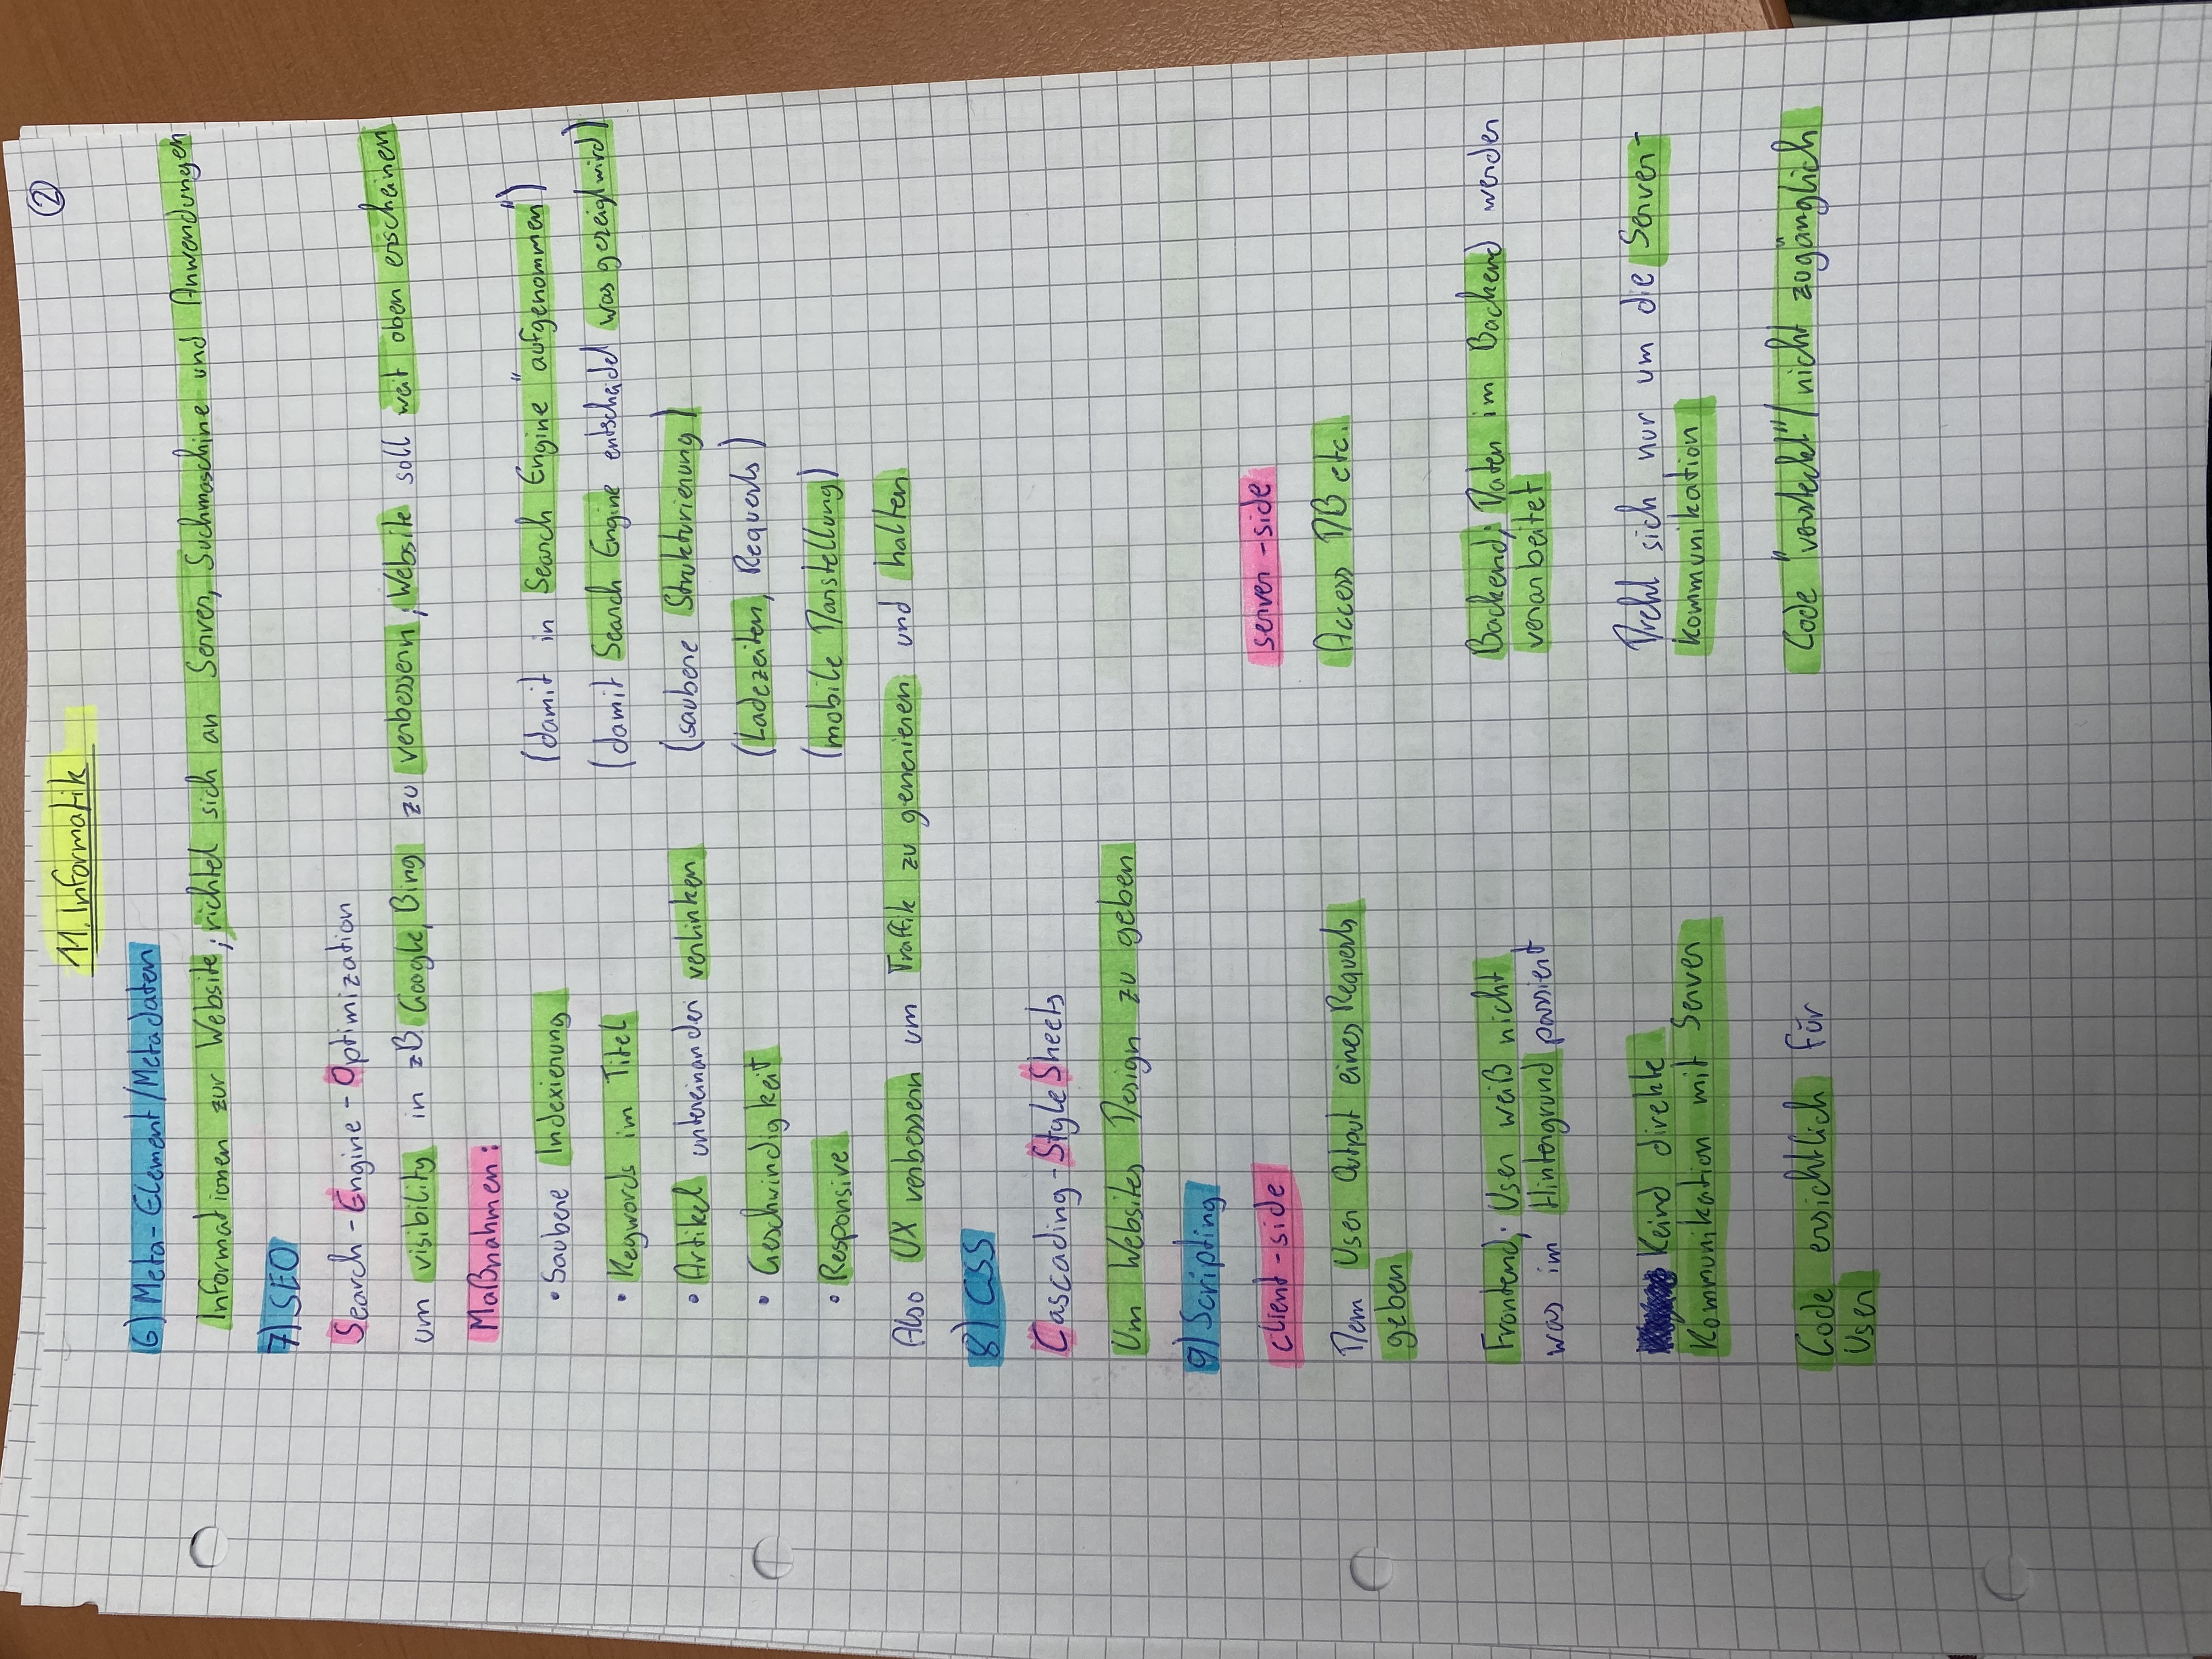 ②
11. Informatik
6) Meta-Element/Metadaten
Informationen zur Website; richtet sich an Server, Suchmaschine und Anwendungen
7) SEO
Search-Engine-Optimization
um visibility in zB Google, Bing zu verbessern; Website soll weit oben erscheinen
Maßnahmen:
• Saubere Indexierung (damit in Search Engine "aufgenommen")
• Keywords im Titel (damit Search Engine entscheidet was gezeigt wird)
• Artikel untereinander verlinken (saubere Strukturierung)
• Geschwindigkeit (Ladezeiten, Requests)
• Responsive (mobile Darstellung)
Also UX verbessern um Traffik zu generieren und halten
8) CSS
Cascading-Style Sheets
Um Websites Design zu geben
9) Scripting
client-side
Dem User Output eines Requests
geben
Frontend; User weiß nicht
was im Hintergrund passiert
Keind direkte
Kommunikation mit Server
Code ersichtlich für
User
server-side
Access DB etc.
Backend; Daten im Backend werden
verarbeitet
Dreht sich nur um die Server-
kommunikation
Code "versteckt"/nicht zugänglich